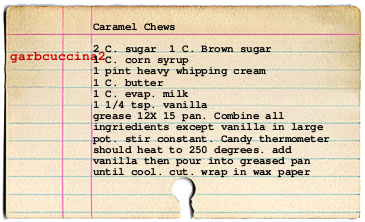 Caramel Chews
2 C. sugar 1 C. Brown sugar
garbcuccina2
C. corn syrup
1 pint heavy whipping cream
1 C. butter
1 C. evap. milk
1 1/4 tsp. vanilla
grease 12X 15 pan. Combine all
ingriedients except vanilla in large
pot. stir constant. Candy thermometer
should heat to 250 degrees. add
vanilla then pour into greased pan
until cool. cut. wrap in wax paper